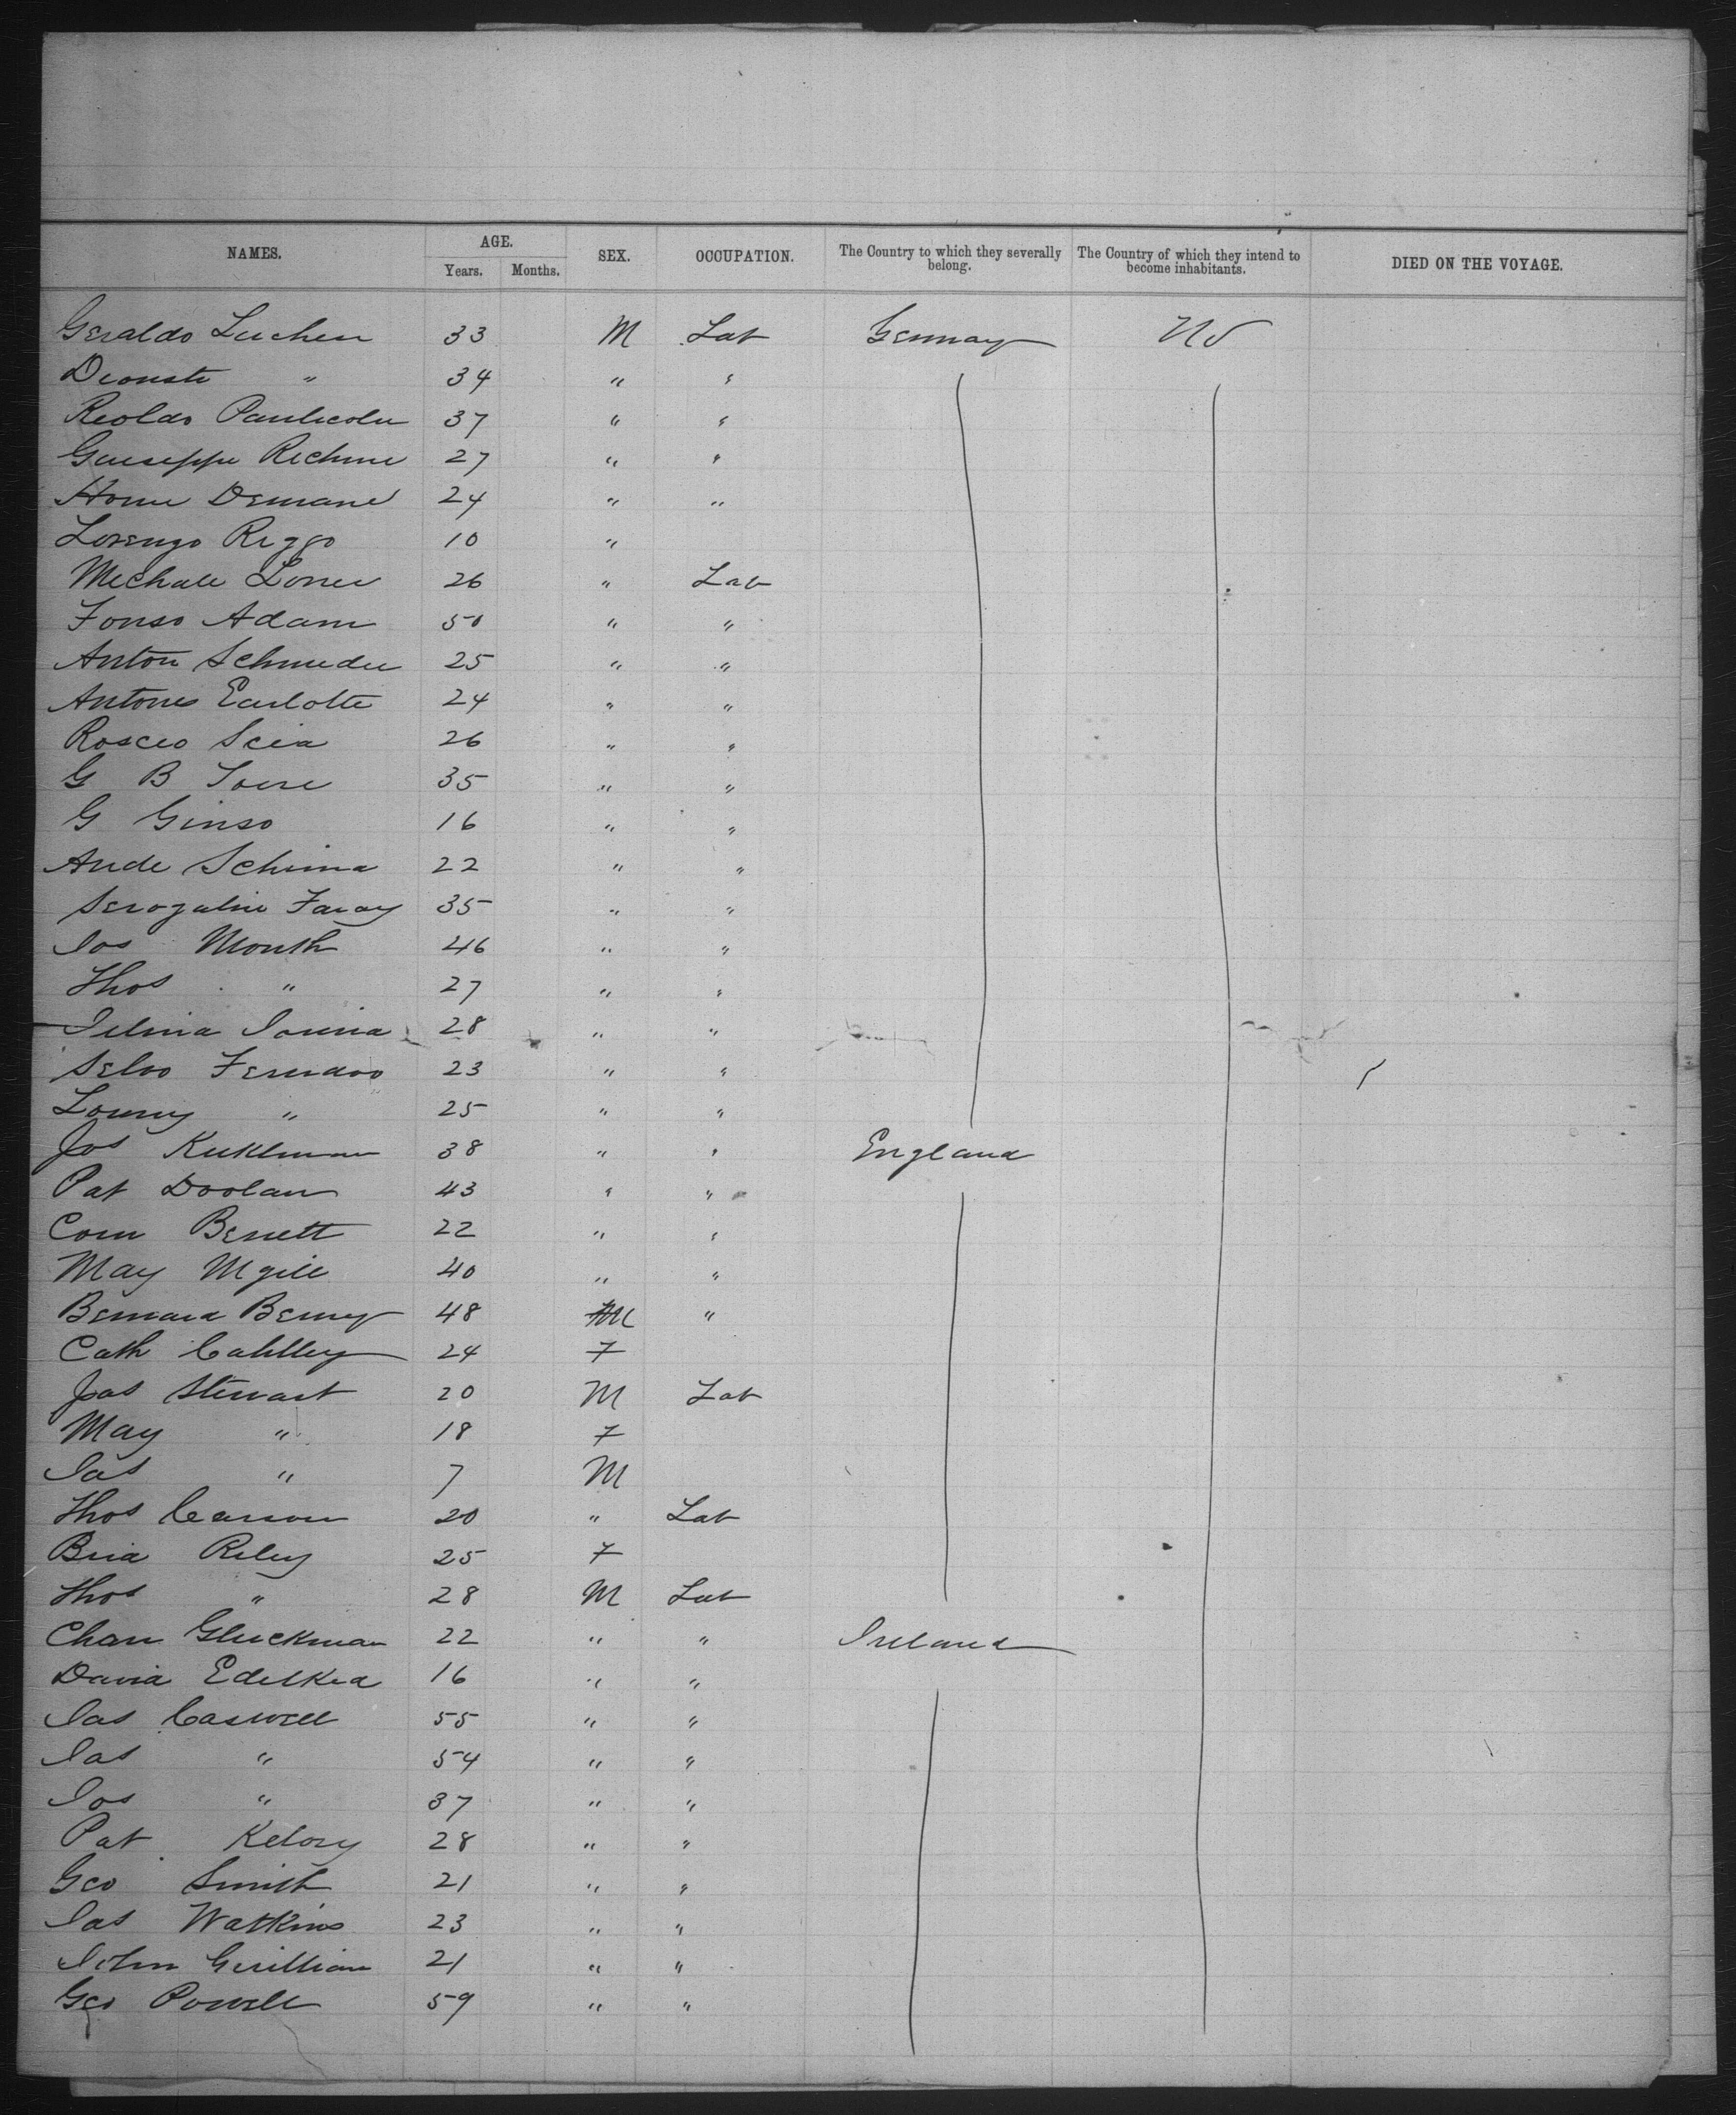 NAMES. AGE. Years. Months. SEX. OCCUPATION. The Country to which they severally belong. The Country of which they intend to become inhabitants. DIED ON THE VOYAGE.
Geraldo Luchen 33 M Lab Germany US
" 34 " "
37 " "
Guiseppe Richme 27 " "
24 " "
Lorenzo Riggo 10 "
Michale 26 " Lab
Fonso Adam 50 " "
Anton Schmeder 25 " "
Antonio Earlotte 24 " "
Roscio Scia 26 " "
G B 35 " "
G Ginso 16 " "
Ande Schima 22 " "
35 " "
Jos Month 46 " "
Thos " 27 " "
28 " "
23 " "
" 25 " "
Jos Kuklman 38 " " England
Pat Doolan 43 " "
Corn Benett 22 " "
May Mgill 40 " "
Bernard 48 M "
Cath 24 F
Jas Stewart 20 M Lab
May " 18 F
Jas " 7 M
Thos Carson 20 " Lab
Riley 25 F
Thos " 28 M Lab
Gluckman 22 " " Ireland
David 16 " "
Jas Caswell 55 " "
Jas " 54 " "
Jos " 37 " "
Pat 28 " "
Geo Smith 21 " "
Jas Watkins 23 " "
John 21 " "
Geo Powell 59 " "